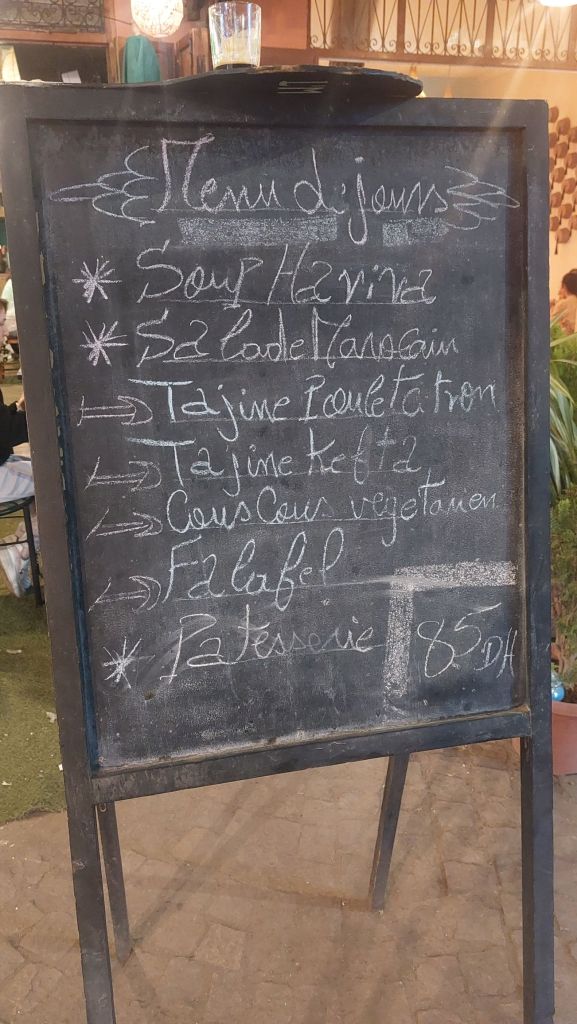 Menu de jours
Soup Harira
Salade Marocain
Tajine Poulet citron
Tajine Kefta
CousCous vegetarien
Falafel
Patesserie
85 DH